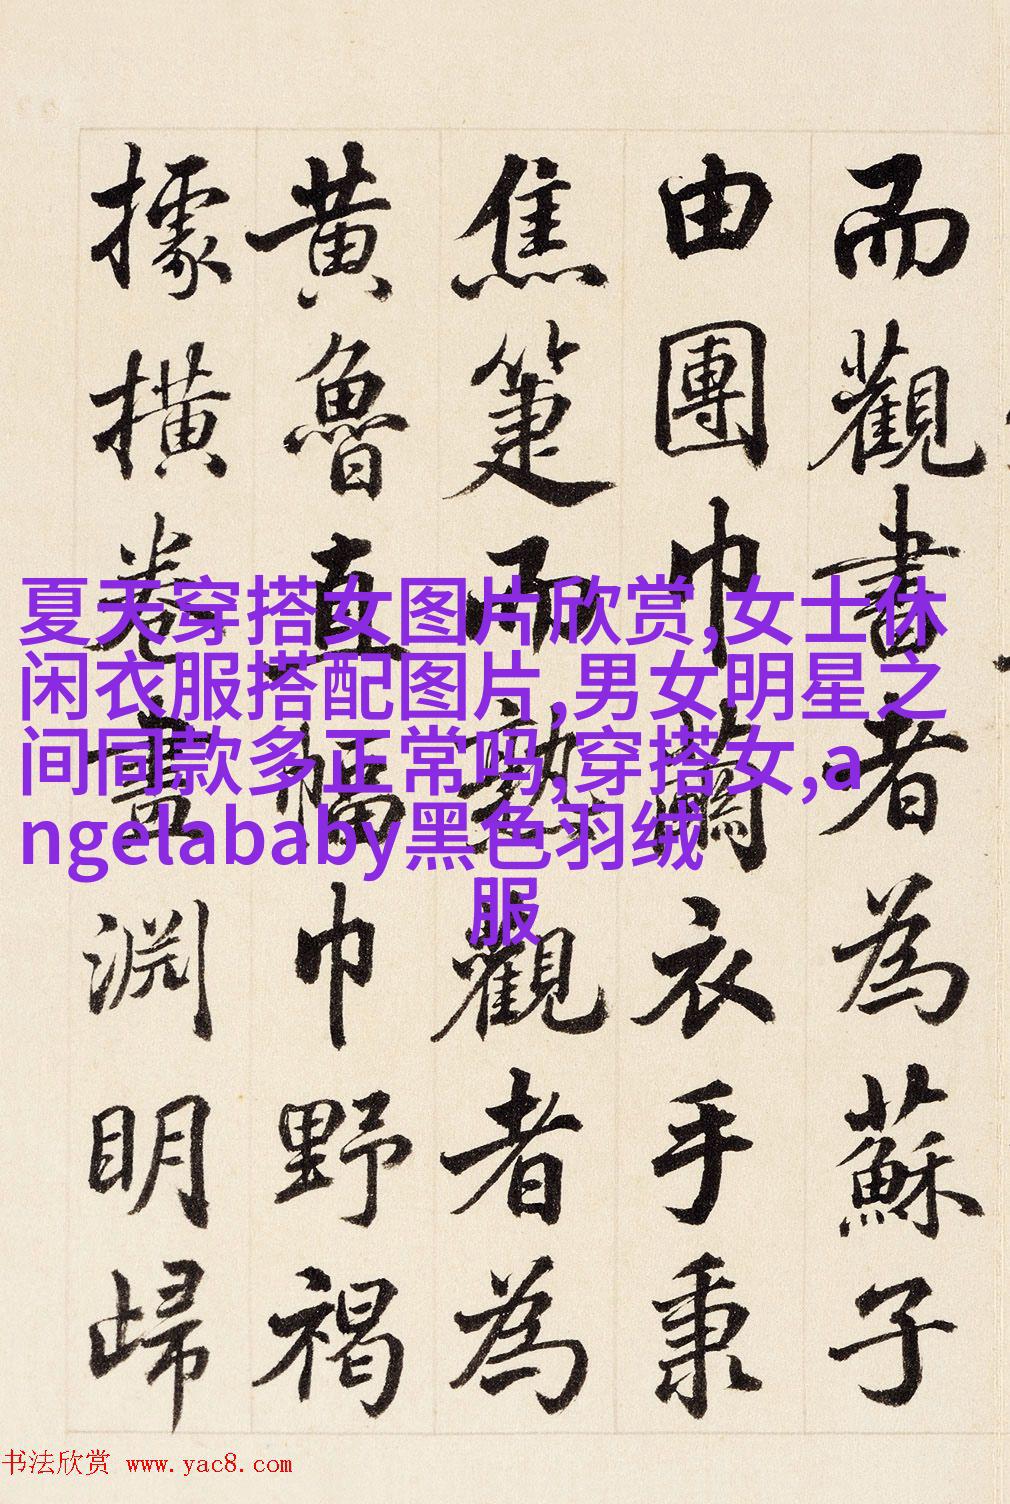 而觀書者為蘇子
由團巾繭衣手秉
焦箑而熟觀者為
黃魯直幅巾野褐
據撗卷畫淵明歸
夏天穿搭女图片欣赏,女士休
闲衣服搭配图片,男女明星之
间同款多正常吗,穿搭女,a
ngelababy黑色羽绒
服
书法欣赏 www.yac8.com